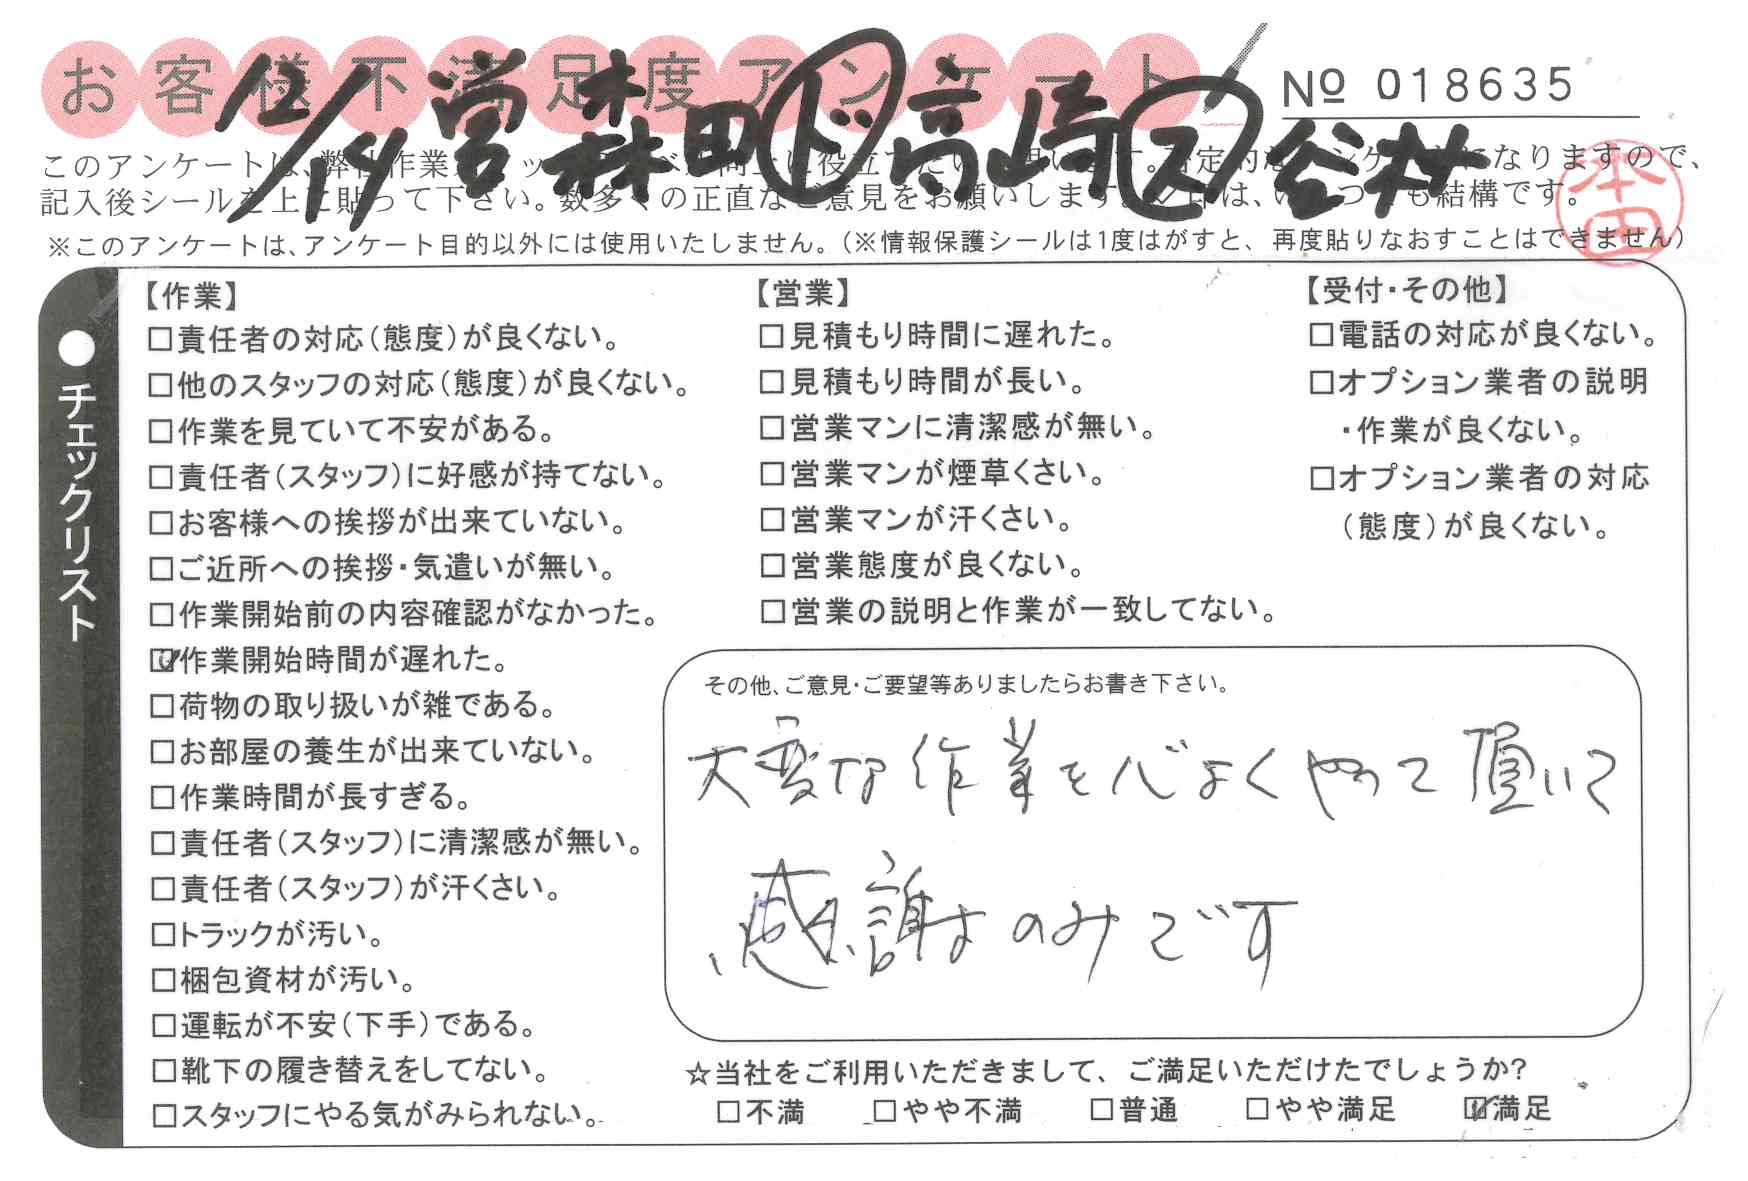 お客様不満足度アンケート
№ 018635
12/14 営 森田 ド 高崎 ス 谷村
このアンケートは、弊社作業
記入後シールを上に貼って下さい。数多くの正直なご意見をお願いします。
も結構です。
本田
※このアンケートは、アンケート目的以外には使用いたしません。(※情報保護シールは1度はがすと、再度貼りなおすことはできません)
●チェックリスト
【作業】
□責任者の対応(態度)が良くない。
□他のスタッフの対応(態度)が良くない。
□作業を見ていて不安がある。
□責任者(スタッフ)に好感が持てない。
□お客様への挨拶が出来ていない。
□ご近所への挨拶・気遣いが無い。
□作業開始前の内容確認がなかった。
☑作業開始時間が遅れた。
□荷物の取り扱いが雑である。
□お部屋の養生が出来ていない。
□作業時間が長すぎる。
□責任者(スタッフ)に清潔感が無い。
□責任者(スタッフ)が汗くさい。
□トラックが汚い。
□梱包資材が汚い。
□運転が不安(下手)である。
□靴下の履き替えをしてない。
□スタッフにやる気がみられない。
【営業】
□見積もり時間に遅れた。
□見積もり時間が長い。
□営業マンに清潔感が無い。
□営業マンが煙草くさい。
□営業マンが汗くさい。
□営業態度が良くない。
□営業の説明と作業が一致してない。
【受付・その他】
□電話の対応が良くない。
□オプション業者の説明
・作業が良くない。
□オプション業者の対応
(態度)が良くない。
その他、ご意見・ご要望等ありましたらお書き下さい。
大変な作業を心よくやって頂いて
感謝のみです
☆当社をご利用いただきまして、ご満足いただけたでしょうか?
□不満 □やや不満 □普通 □やや満足 ☑満足